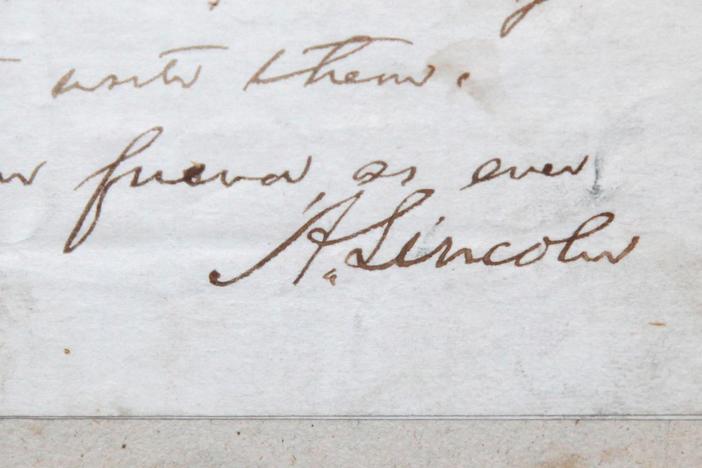 write them.
friend as ever
A. Lincoln